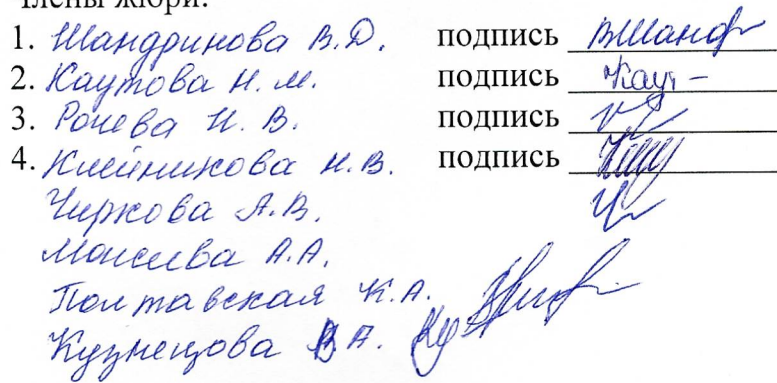 Члены жюри:
1. Шандринова В.Д. подпись ВШанд
2. Каутова Н.М. подпись Кау
3. Рочева И.В. подпись
4. Клейникова Н.В. подпись
Чиркова А.В.
Моисеева А.А.
Полтавская К.А.
Кузнецова В.А. Ку